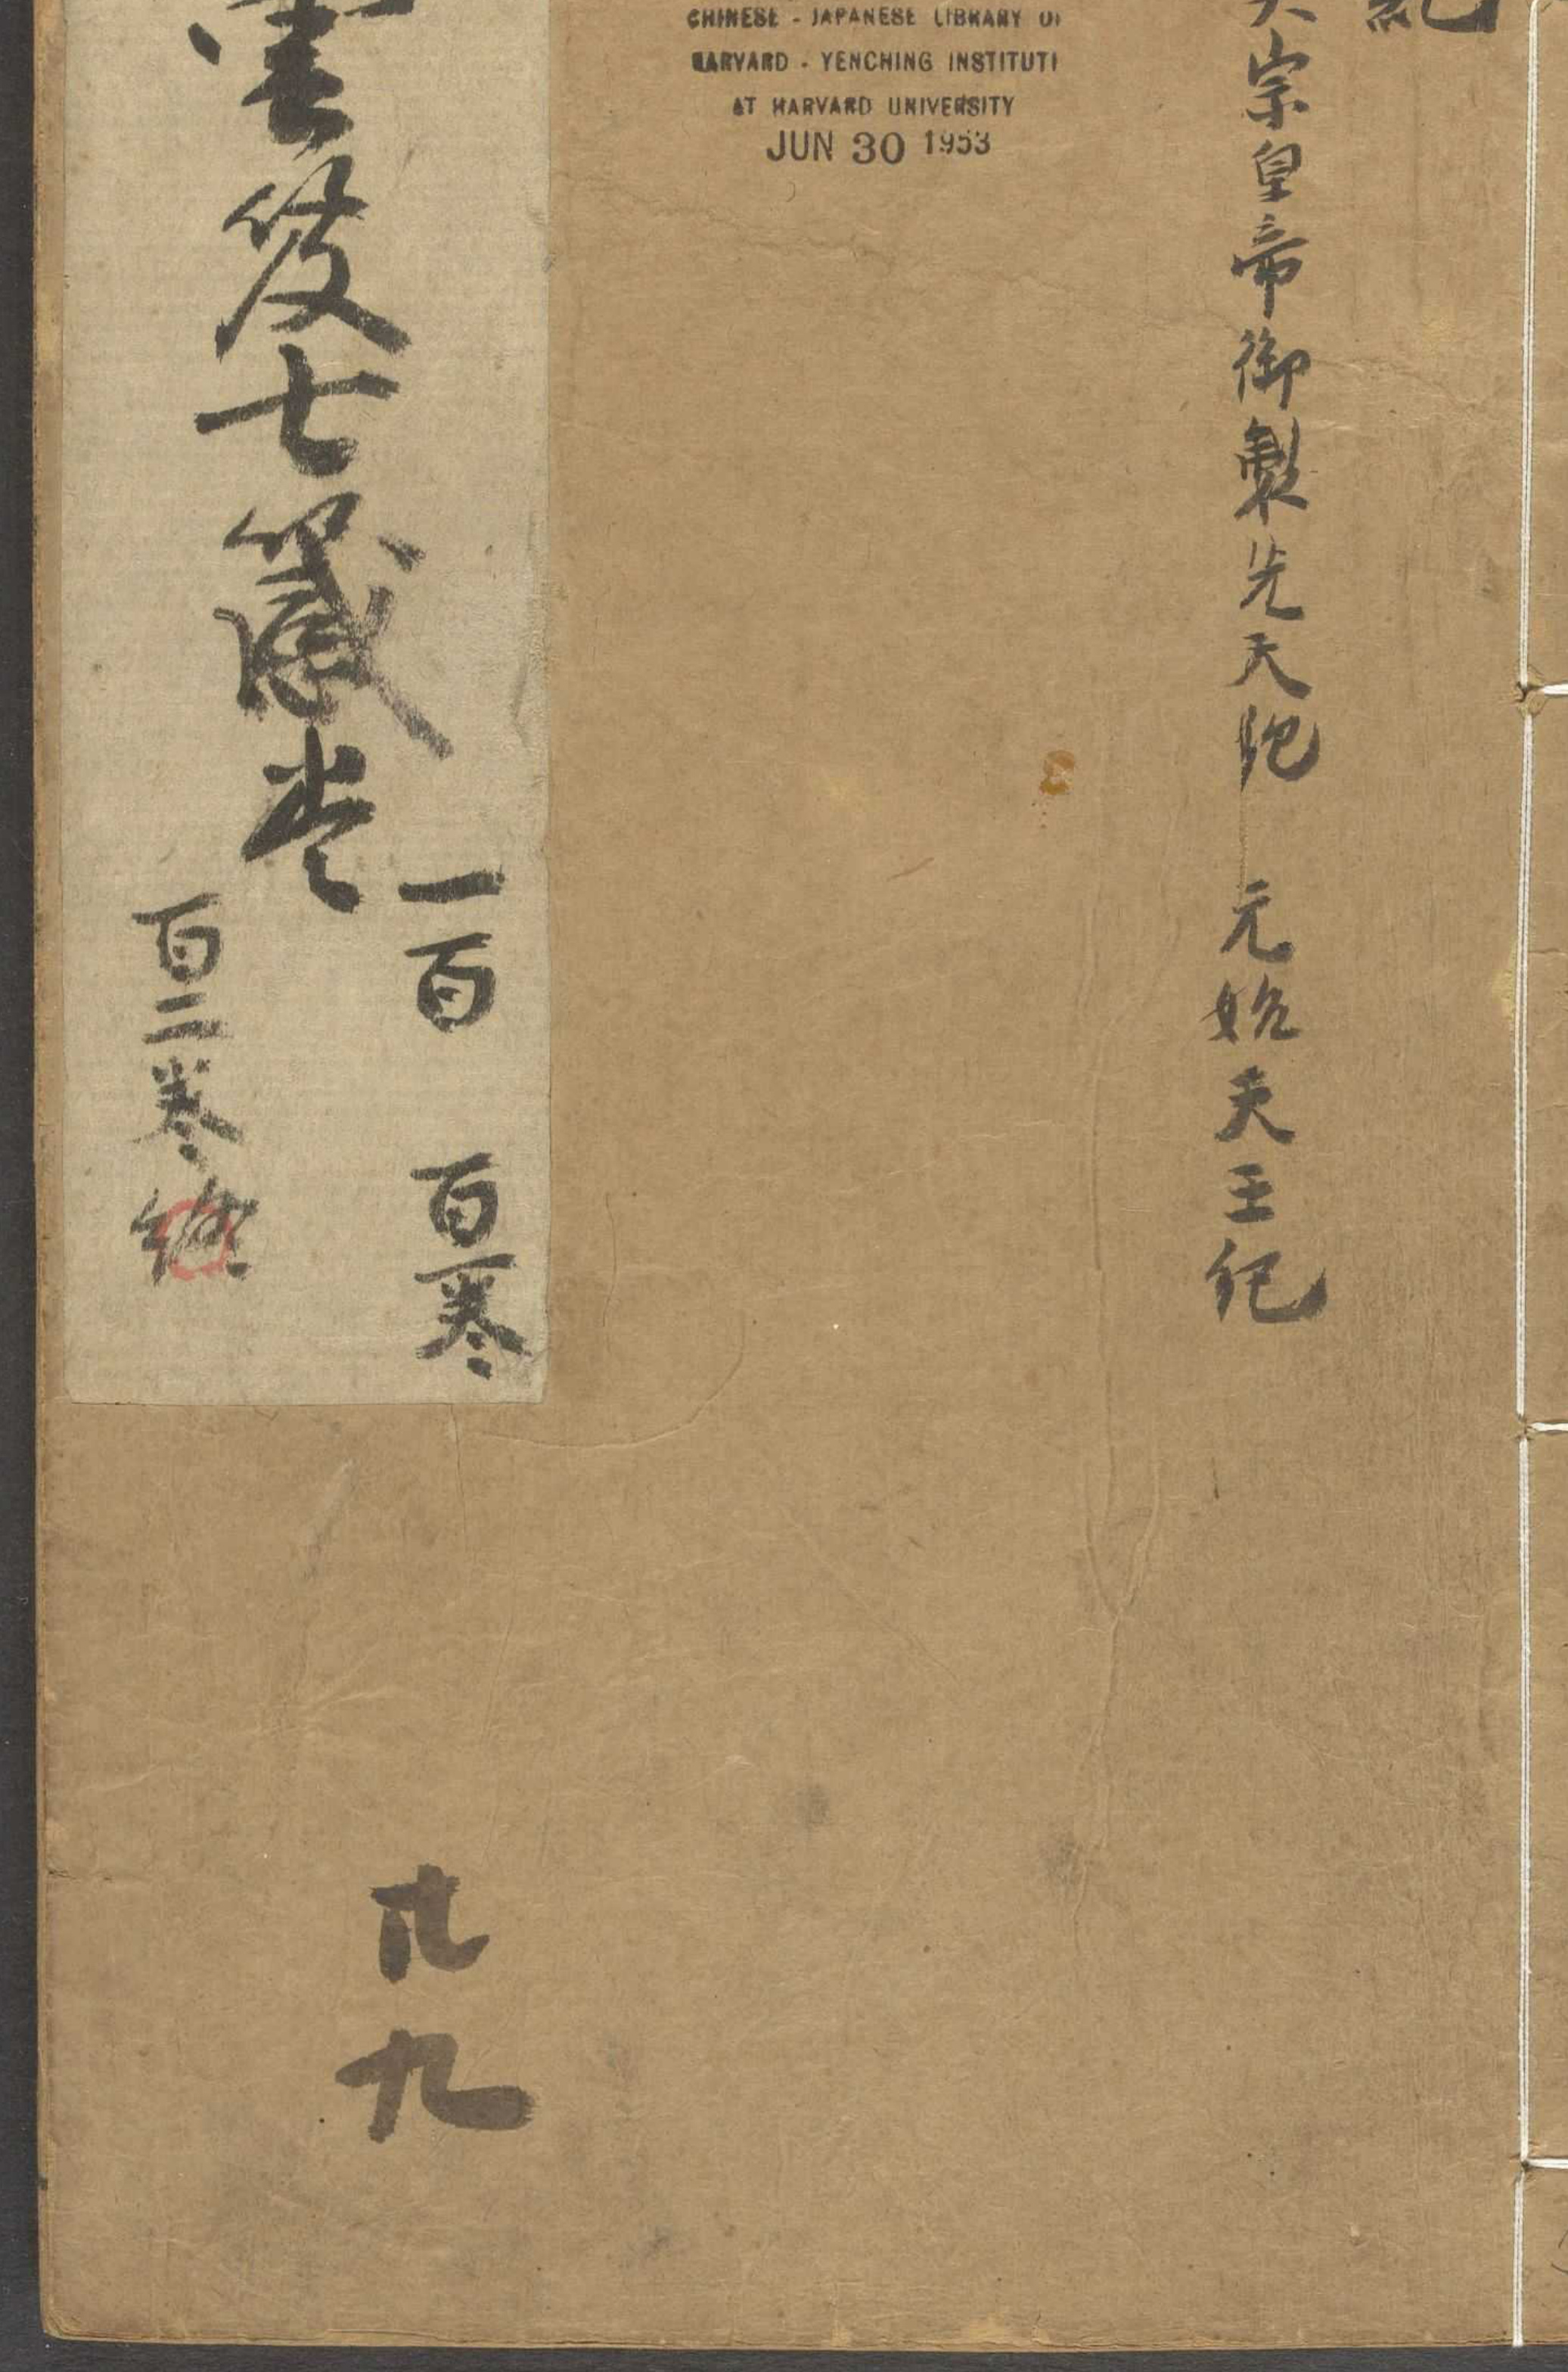 紀
宗皇帝御製先天紀 元始天王紀
CHINESE - JAPANESE LIBRARY OF
HARVARD - YENCHING INSTITUTE
AT HARVARD UNIVERSITY
JUN 30 1953
雲笈七籤卷
一百 百一卷
百二卷終
廿九